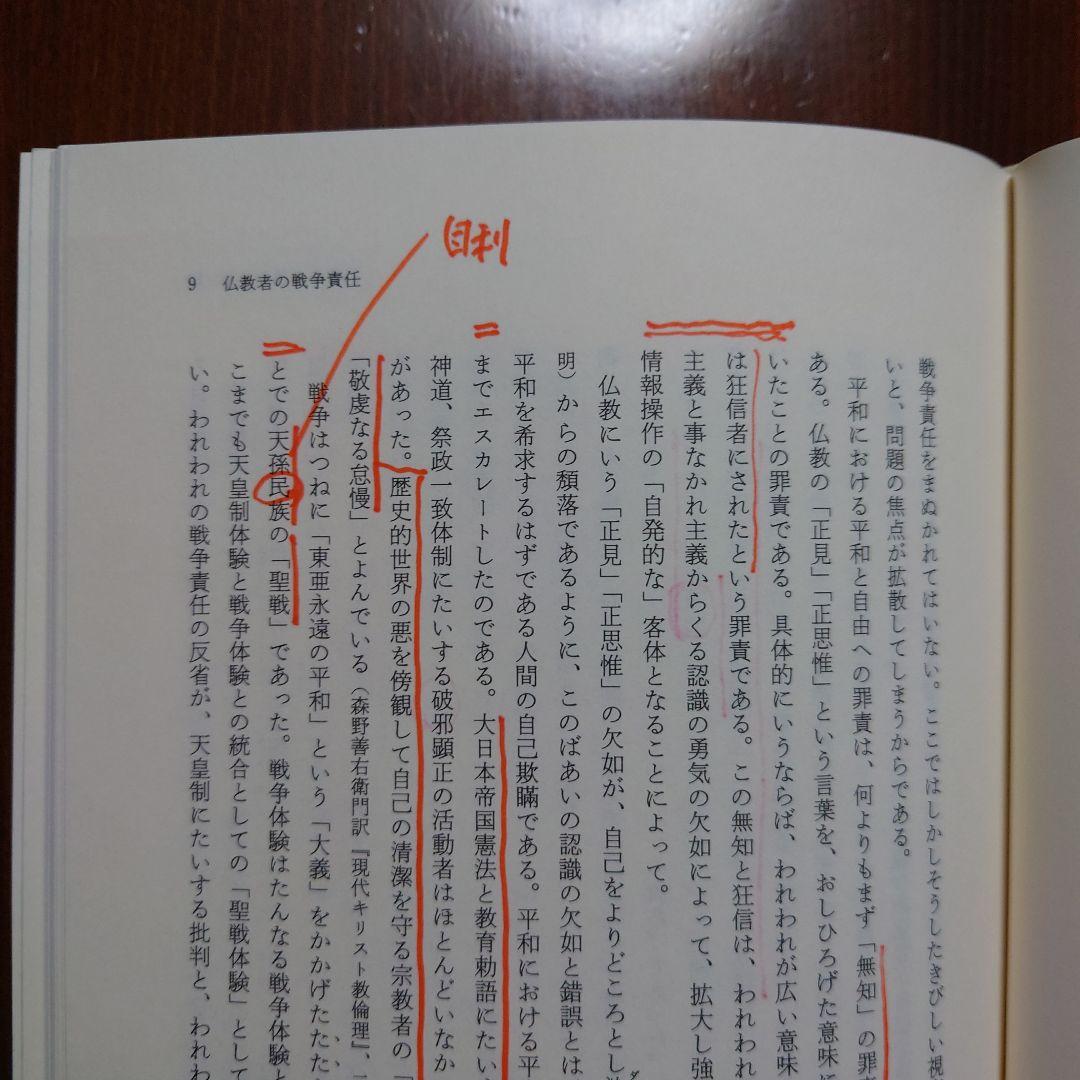 自利
9 仏教者の戦争責任
戦争責任をまぬかれてはいない。ここではしかしそうしたきびしい視
いと、問題の焦点が拡散してしまうからである。
平和における平和と自由への罪責は、何よりもまず「無知」の罪責
ある。仏教の「正見」「正思惟」という言葉を、おしひろげた意味に
いたことの罪責である。具体的にいうならば、われわれが広い意味
は狂信者にされたという罪責である。この無知と狂信は、われわれ
主義と事なかれ主義からくる認識の勇気の欠如によって、拡大し強
情報操作の「自発的な」客体となることによって。
仏教にいう「正見」「正思惟」の欠如が、自己をよりどころとし
明）からの頽落であるように、このばあいの認識の欠如と錯誤とは
平和を希求するはずである人間の自己欺瞞である。平和における平
までエスカレートしたのである。大日本帝国憲法と教育勅語にたい
神道、祭政一致体制にたいする破邪顕正の活動者はほとんどいなか
があった。歴史的世界の悪を傍観して自己の清潔を守る宗教者の「
「敬虔なる怠慢」とよんでいる（森野善右衛門訳『現代キリスト教倫理』、
戦争はつねに「東亜永遠の平和」という「大義」をかかげたたた
とでの天孫民族の「聖戦」であった。戦争体験はたんなる戦争体験と
こまでも天皇制体験と戦争体験との統合としての「聖戦体験」として
い。われわれの戦争責任の反省が、天皇制にたいする批判と、われわ